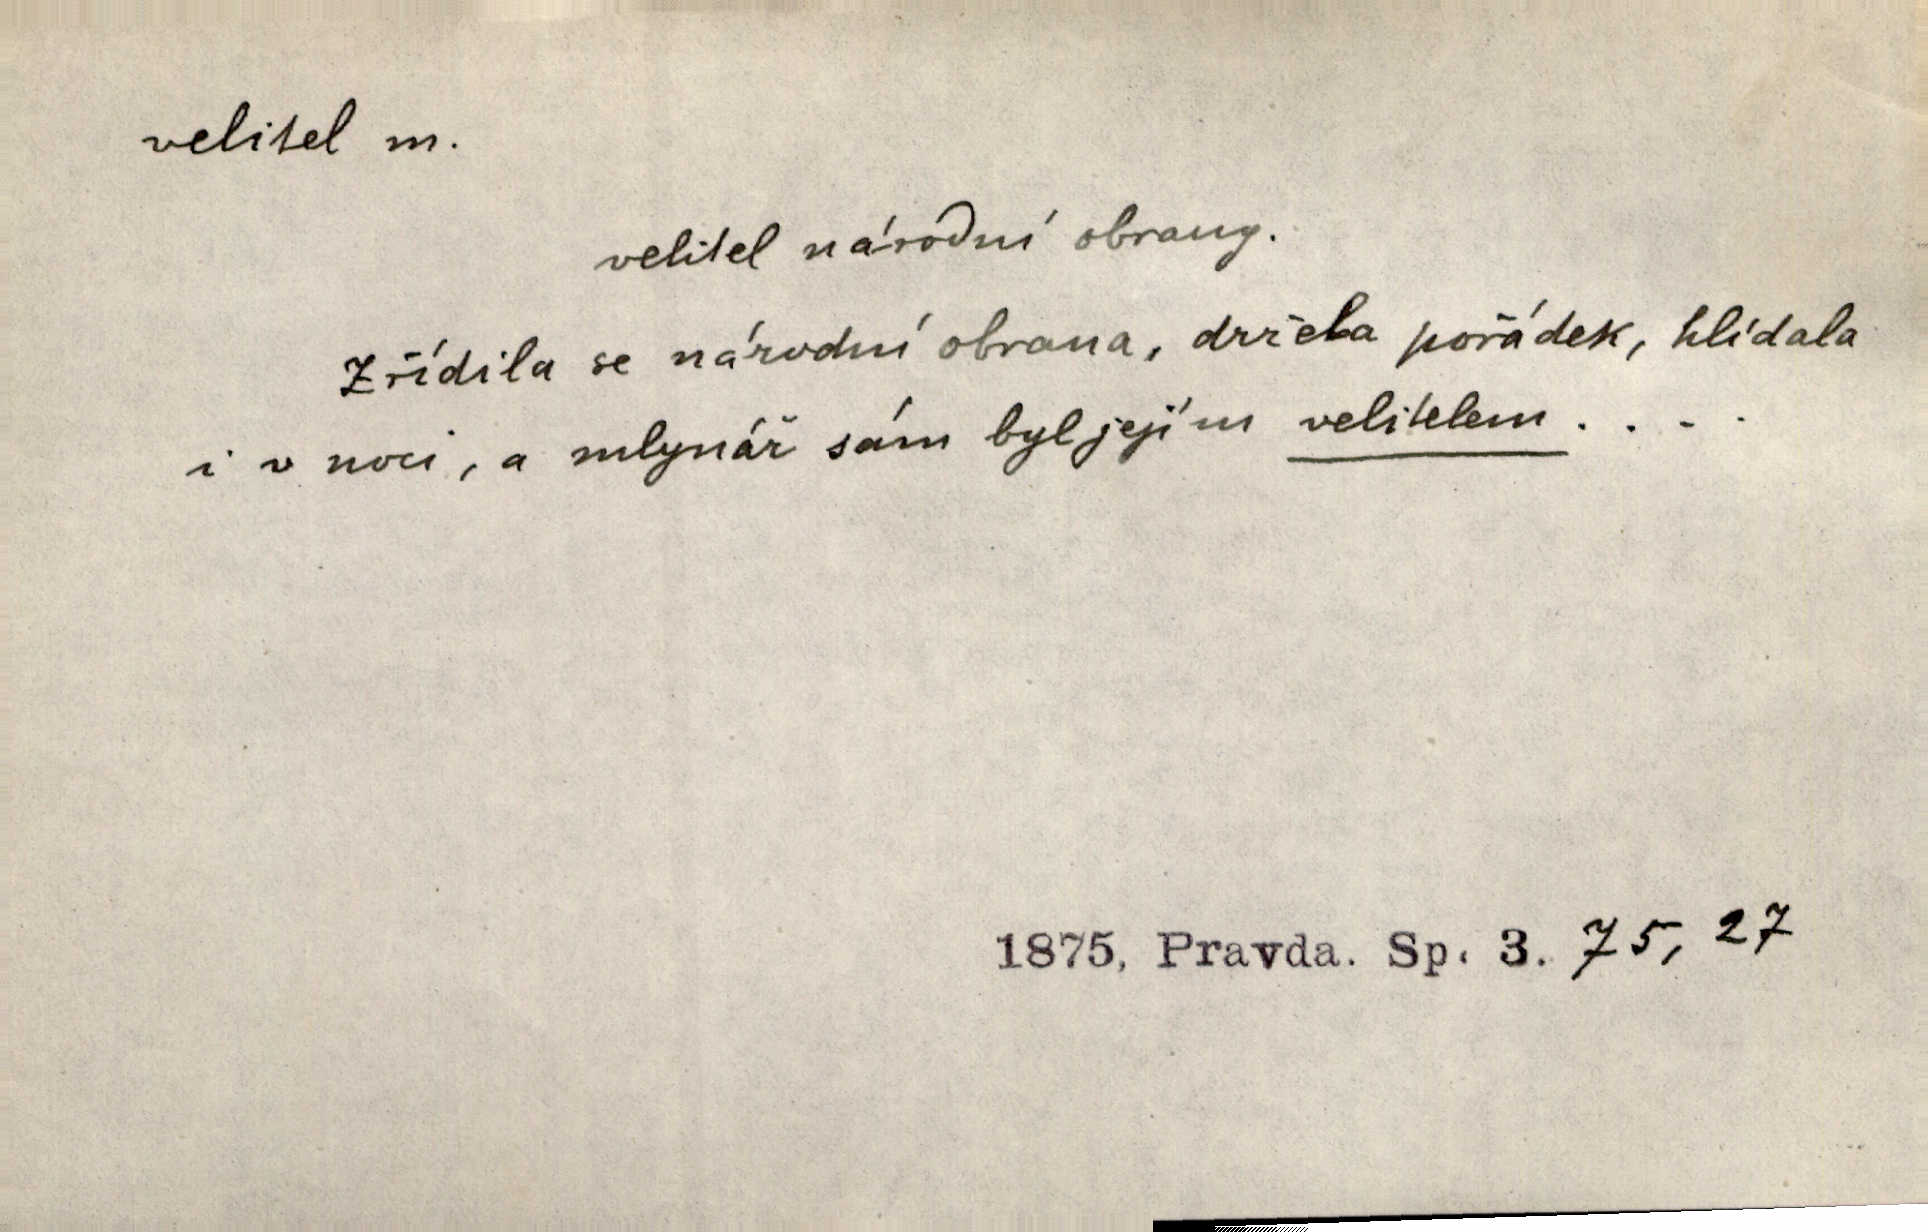 velitel m.
velitel národní obrany.
Zřídila se národní obrana, držela pořádek, hlídala
i v noci, a mlynář sám byl jejím velitelem . . . .
1875, Pravda. Sp. 3. 75, 27